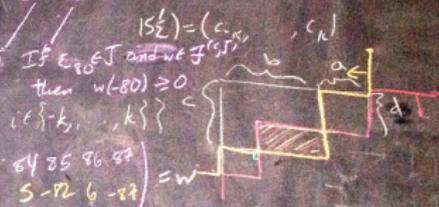 ) = (c , c
If ε₈₀ ∈ J and w ∈
then w(-80) ≥ 0
i ∈ {-k, ..., k}
b
a
c
d
84 85 86 87
5 -82 6 -87
= w